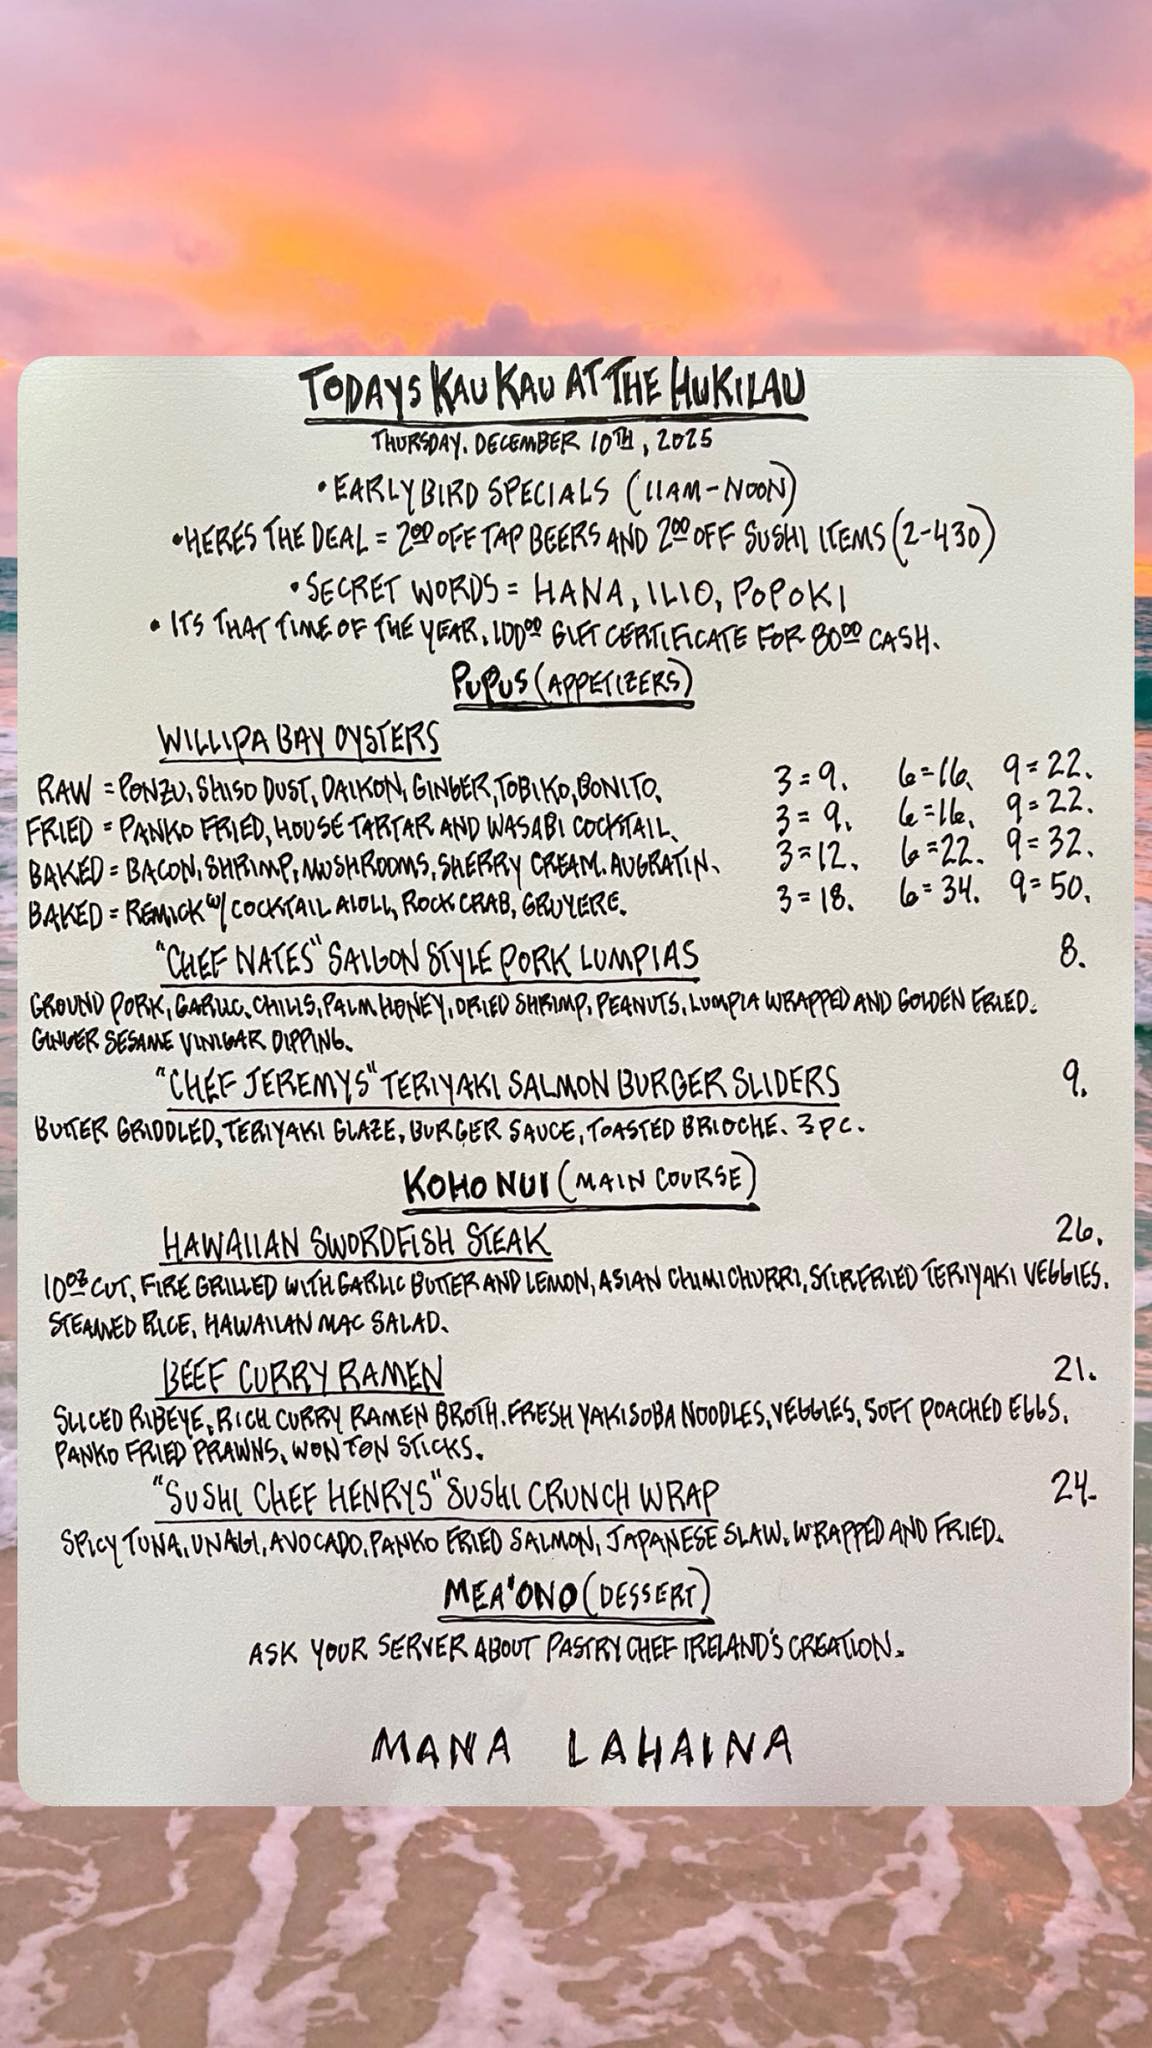 TODAYS KAU KAU AT THE HUKILAU
THURSDAY. DECEMBER 10TH, 2025
• EARLY BIRD SPECIALS (11AM-NOON)
• HERES THE DEAL = 2.00 OFF TAP BEERS AND 2.00 OFF SUSHI ITEMS (2-430)
• SECRET WORDS = HANA, ILIO, POPOKI
• ITS THAT TIME OF THE YEAR. 100.00 GIFT CERTIFICATE FOR 80.00 CASH.
PUPUS (APPETIZERS)
WILLIPA BAY OYSTERS
RAW = PONZU, SHISO DUST, DAIKON, GINGER, TOBIKO, BONITO. 3=9. 6=16. 9=22.
FRIED = PANKO FRIED, HOUSE TARTAR AND WASABI COCKTAIL. 3=9. 6=16. 9=22.
BAKED = BACON, SHRIMP, MUSHROOMS, SHERRY CREAM. AUGRATIN. 3=12. 6=22. 9=32.
BAKED = REMICK W/ COCKTAIL AIOLI, ROCK CRAB, GRUYERE. 3=18. 6=34. 9=50.
"CHEF NATES" SAIGON STYLE PORK LUMPIAS 8.
GROUND PORK, GARLIC, CHILIS, PALM HONEY, DRIED SHRIMP, PEANUTS, LUMPIA WRAPPED AND GOLDEN FRIED.
GINGER SESAME VINIGAR DIPPING.
"CHEF JEREMYS" TERIYAKI SALMON BURGER SLIDERS 9.
BUTTER GRIDDLED, TERIYAKI GLAZE, BURGER SAUCE, TOASTED BRIOCHE. 3PC.
KOHO NUI (MAIN COURSE)
HAWAIIAN SWORDFISH STEAK 26.
10OZ CUT, FIRE GRILLED WITH GARLIC BUTTER AND LEMON, ASIAN CHIMICHURRI, STIRFRIED TERIYAKI VEGGIES.
STEAMED RICE, HAWAIIAN MAC SALAD.
BEEF CURRY RAMEN 21.
SLICED RIBEYE, RICH CURRY RAMEN BROTH, FRESH YAKISOBA NOODLES, VEGGIES, SOFT POACHED EGGS.
PANKO FRIED PRAWNS, WON TON STICKS.
"SUSHI CHEF HENRYS" SUSHI CRUNCH WRAP 24.
SPICY TUNA, UNAGI, AVOCADO, PANKO FRIED SALMON, JAPANESE SLAW. WRAPPED AND FRIED.
MEA'ONO (DESSERT)
ASK YOUR SERVER ABOUT PASTRY CHEF IRELAND'S CREATION.
MANA LAHAINA